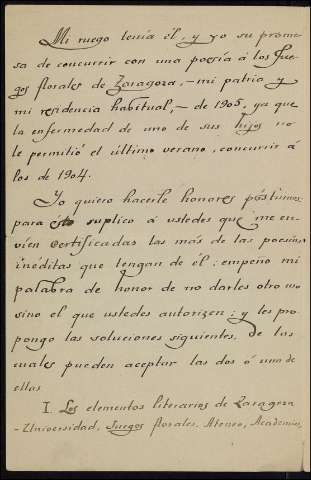 Mi ruego tenía él, y yo su prome-
sa de concurrir con una poesía á los Jue-
gos florales de Zaragoza, - mi patria y
mi residencia habitual, - de 1905, ya que
la enfermedad de uno de sus hijos no
le permitió el último verano, concurrir á
los de 1904.
Yo quiero hacerle honores póstumos:
para ésto suplico á ustedes que me en-
víen certificadas las más de las poesías
inéditas que tengan de él: empeño mi
palabra de honor de no darles otro uso
sino el que ustedes autorizen: y les pro-
pongo las soluciones siguientes, de las
cuales pueden aceptar las dos ó una de
ellas
I. Los elementos literarios de Zaragoza
- Universidad, Juegos florales, Ateneo, Academias,